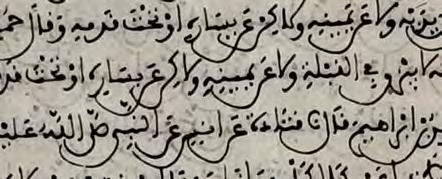 يديه ولا عن يمينه ولاكن عن يساره او تحت قدمه وقال
لا يبزق في القبلة ولا عن يمينه ولاكن عن يساره او تحت
بن ابراهيم قال نا قتادة عن انس عن النبي صلى الله